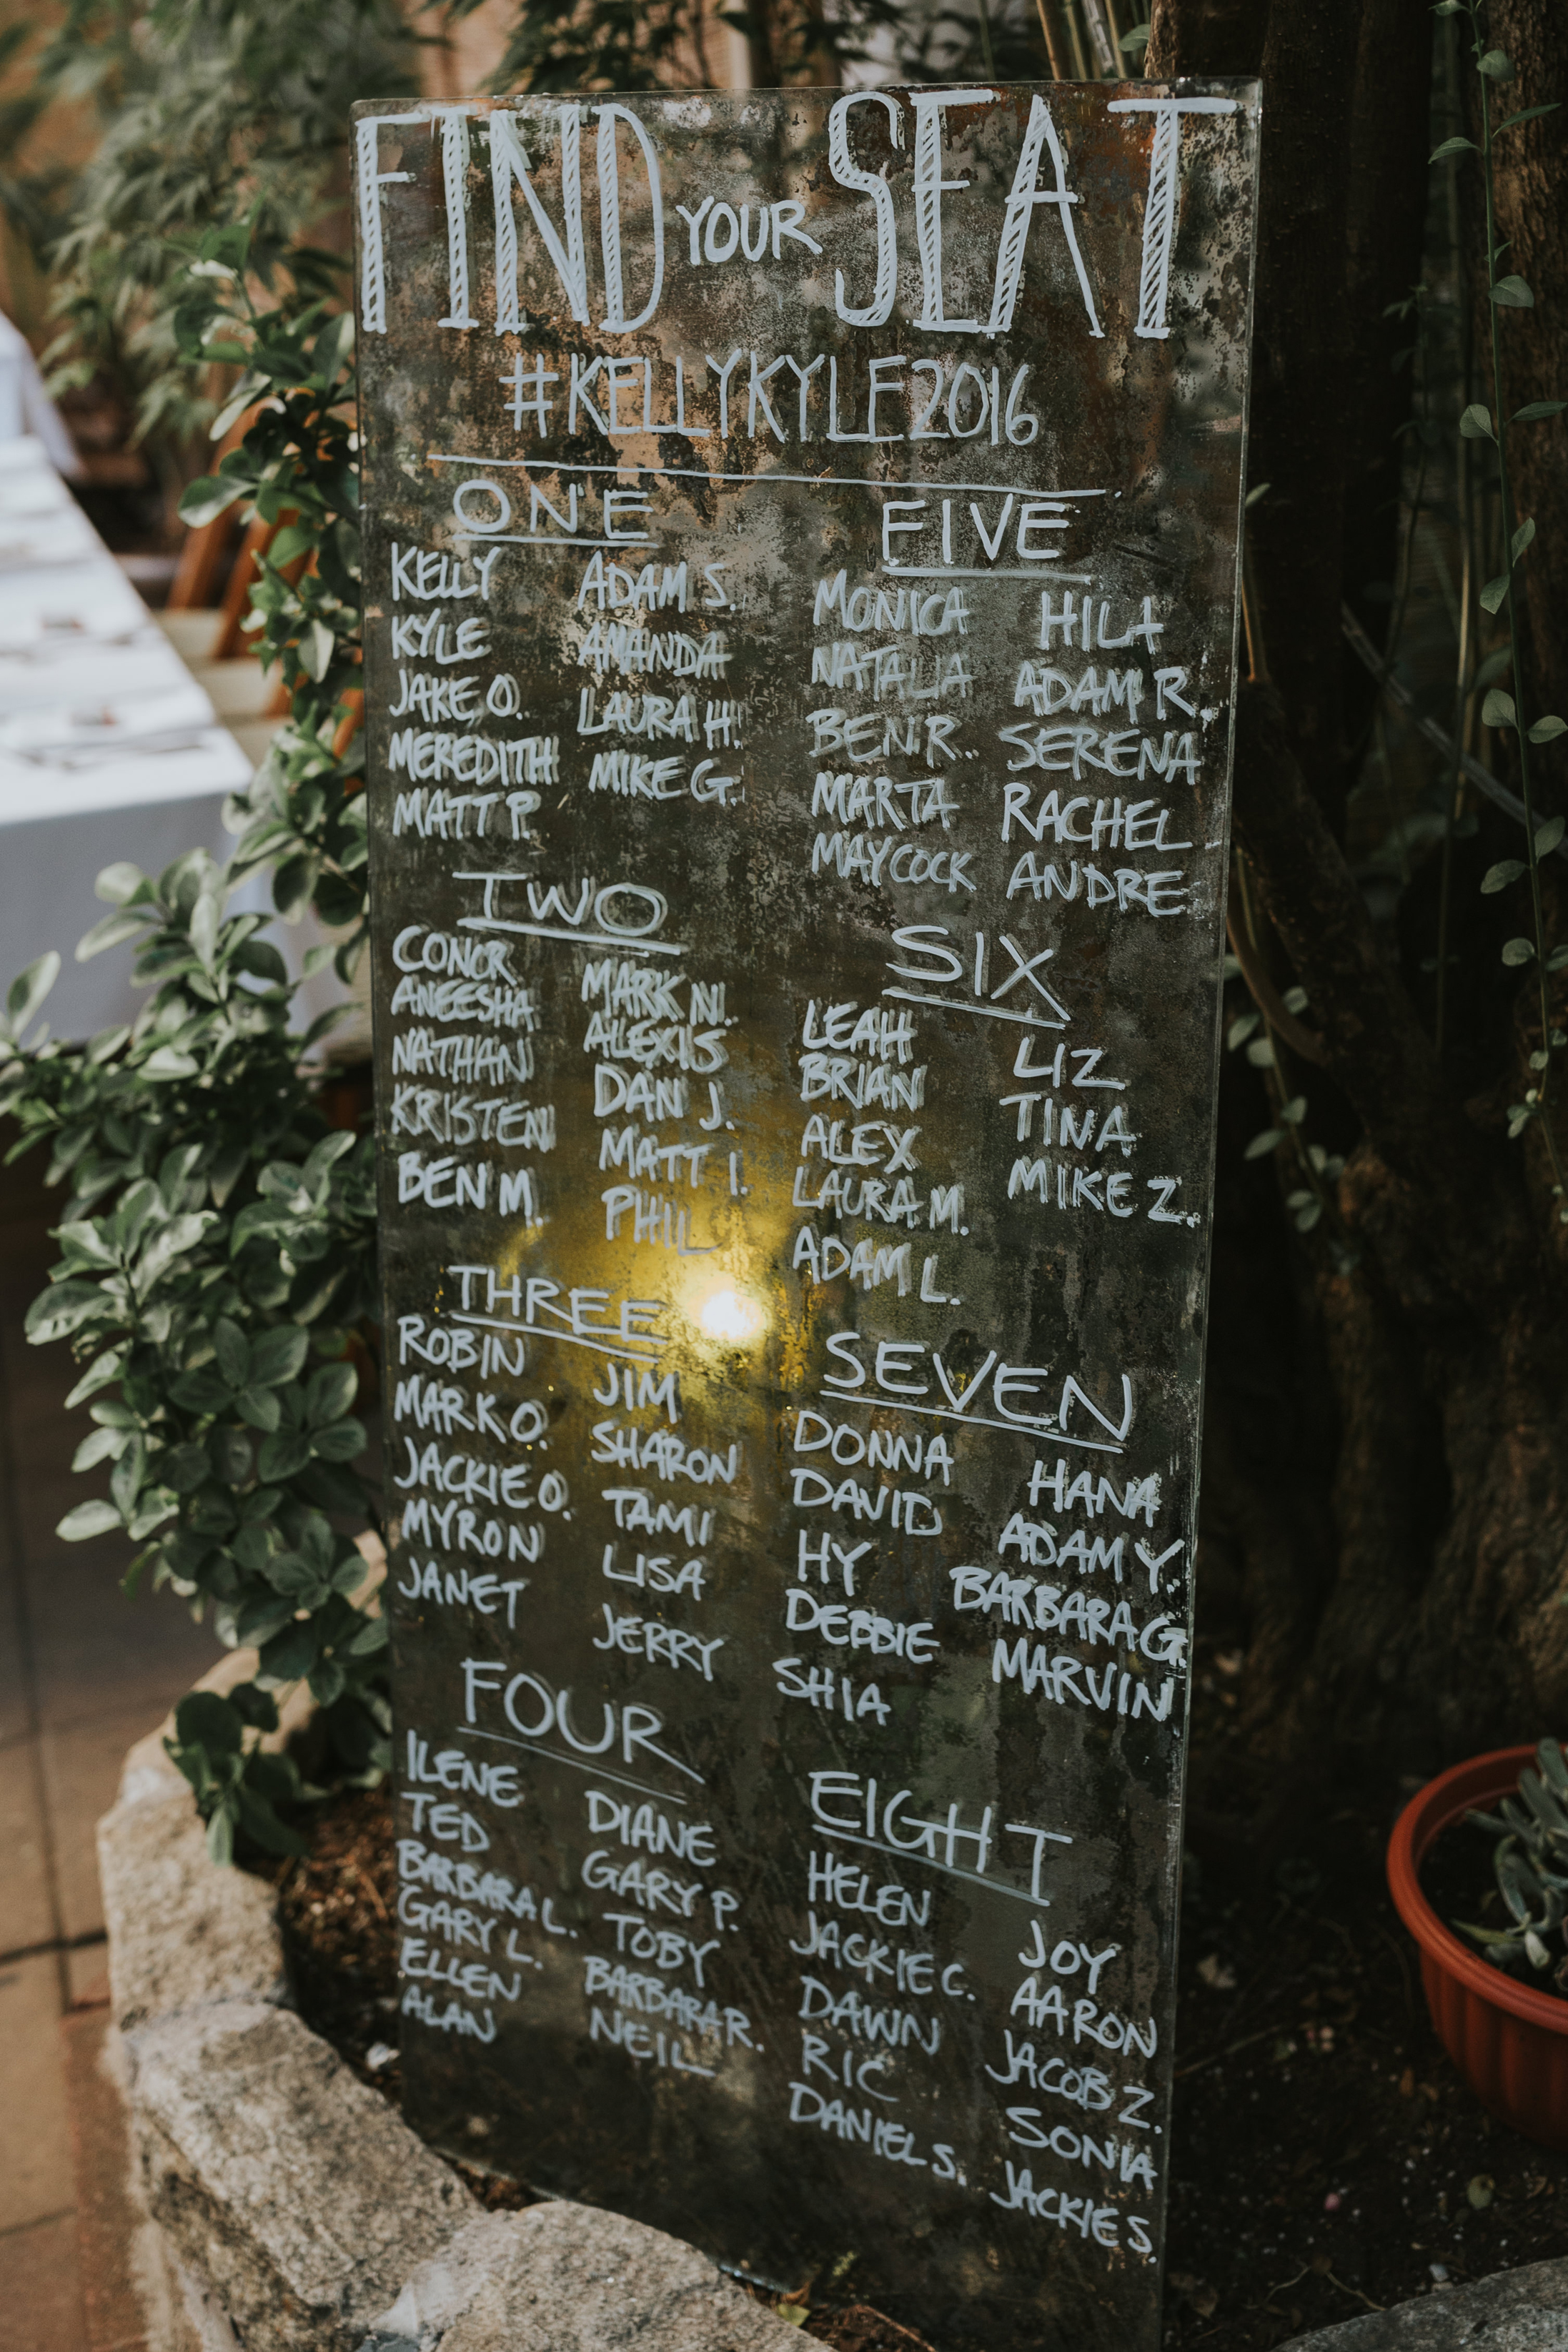 FIND YOUR SEAT
#KELLYKYLE2016
ONE
KELLY
KYLE
JAKE O.
MEREDITH
MATT P.
ADAM S.
AMANDA
LAURA H.
MIKE G.
TWO
CONOR
ANEESHA
NATHAN
KRISTEN
BEN M.
MARK N.
ALEXIS
DAN J.
MATT I.
PHIL
THREE
ROBIN
MARK O.
JACKIE O.
MYRON
JANET
JIM
SHARON
TAMI
LISA
JERRY
FOUR
ILENE
TED
BARBARA L.
GARY L.
ELLEN
ALAN
DIANE
GARY P.
TOBY
BARBARA R.
NEIL
FIVE
MONICA
NATALIA
BEN R.
MARTA
MAYCOCK
HILA
ADAM R.
SERENA
RACHEL
ANDRE
SIX
LEAH
BRIAN
ALEX
LAURA M.
ADAM L.
LIZ
TINA
MIKE Z.
SEVEN
DONNA
DAVID
HY
DEBBIE
SHIA
HANA
ADAM Y.
BARBARA G.
MARVIN
EIGHT
HELEN
JACKIE C.
DAWN
RIC
DANIEL S.
JOY
AARON
JACOB Z.
SONIA
JACKIE S.